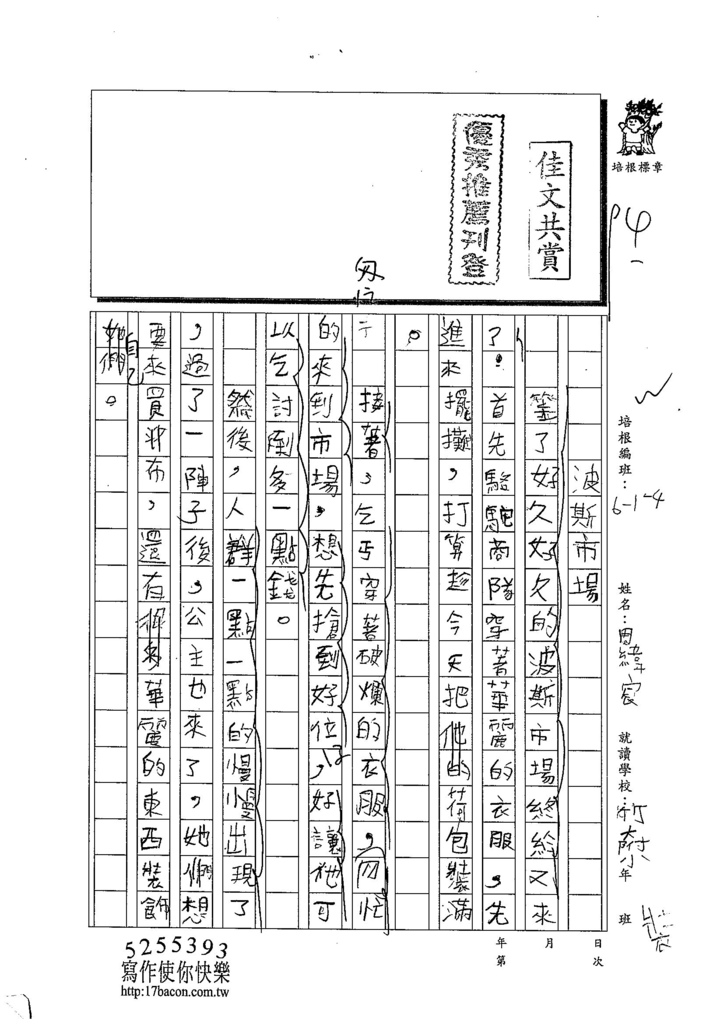 培根標章
佳文共賞
優秀推薦刊登
94
培根編班：6-1-4
姓名：周緯宸
就讀學校：竹附小
年
班
日 月 年
次 第
波斯市場
等了好久好久的波斯市場終給又來
了！首先駱駝商隊穿著華麗的衣服，先
進來擺攤，打算趁今天把他的荷包裝滿
。
接著，乞丐穿著破爛的衣服，匆忙
匆忙
的來到市場，想先搶到好位，好讓他可
以乞討到多一點錢。
然後，人群一點一點的慢慢出現了
，過了一陣子後，公主也來了，她們想
要來買些布，還有很多華麗的東西裝飾
她們自己。
5255393
寫作使你快樂
http:17bacon.com.tw